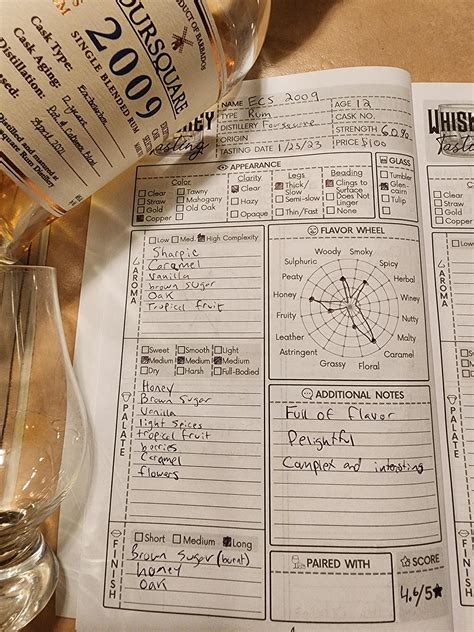 FOURSQUARE
2009
PRODUCT OF BARBADOS
SINGLE BLENDED RUM
Cask Type:
Ex-bourbon
Cask Aging:
12 years
Distillation:
Pot & Column
April 2021
Distilled and matured at
WHISKEY
Tasting
NAME ECS 2009
AGE 12
TYPE Rum
CASK NO.
DISTILLERY Foursquare
STRENGTH 60%
ORIGIN
PRICE $100
TASTING DATE 1/25/23
APPEARANCE
GLASS
Color
Clear
Straw
Gold
Copper
Tawny
Mahogany
Old Oak
Clarity
Clear
Hazy
Opaque
Legs
Thick/Slow
Semi-slow
Thin/Fast
Beading
Clings to Surface
Does Not Linger
None
Tumbler
Glencairn
Tulip
AROMA
Low Med. High Complexity
Sharpie
Caramel
Vanilla
brown sugar
Oak
Tropical fruit
FLAVOR WHEEL
Woody
Smoky
Spicy
Herbal
Winey
Nutty
Malty
Caramel
Floral
Grassy
Astringent
Leather
Fruity
Honey
Peaty
Sulphuric
PALATE
Sweet Smooth Light
Medium Medium Medium
Dry Harsh Full-Bodied
Honey
Brown Sugar
Vanilla
light spices
tropical fruit
berries
Caramel
flowers
ADDITIONAL NOTES
Full of flavor
Delightful
Complex and interesting
FINISH
Short Medium Long
Brown Sugar (burnt)
honey
oak
PAIRED WITH
SCORE
4.6/5